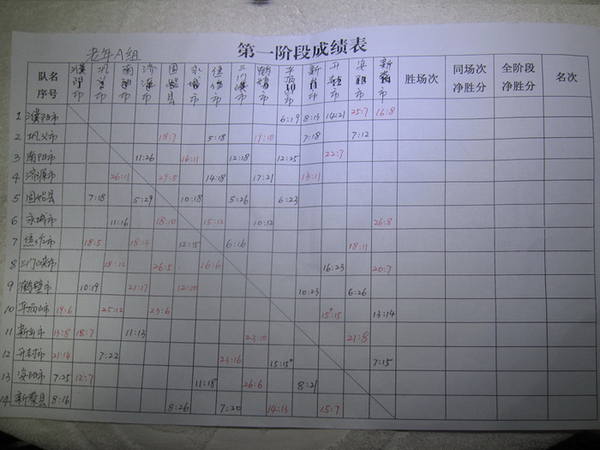 第一阶段成绩表
老年A组
队名 濮阳市 巩义市 南阳市 济源市 固始县 永城市 焦作市 三门峡市 鹤壁市 平顶山市 新乡市 开封市 安阳市 新蔡县 胜场次 同场次净胜分 全阶段净胜分 名次
序号 10 11
1 濮阳市 6:19 8:13 14:21 25:7 16:8
2 巩义市 18:7 5:18 19:10 7:18 7:12
3 南阳市 11:26 16:11 12:18 12:25 22:7
4 济源市 26:11 29:5 14:18 17:21 13:11
5 固始县 7:18 5:29 10:18 5:26 6:23
6 永城市 11:16 18:10 15:12 10:12 26:8
7 焦作市 18:5 18:14 12:15 6:16 18:11
8 三门峡市 18:12 26:5 16:6 16:23 20:7
9 鹤壁市 10:19 21:17 12:10 10:23 6:26
10 平顶山市 19:6 25:12 23:6 15:15 13:14
11 新乡市 13:8 18:7 11:13 23:10 21:8
12 开封市 21:14 7:22 23:16 15:15 7:15
13 安阳市 7:25 12:7 11:18 26:6 8:21
14 新蔡县 8:16 8:26 7:20 14:13 15:7